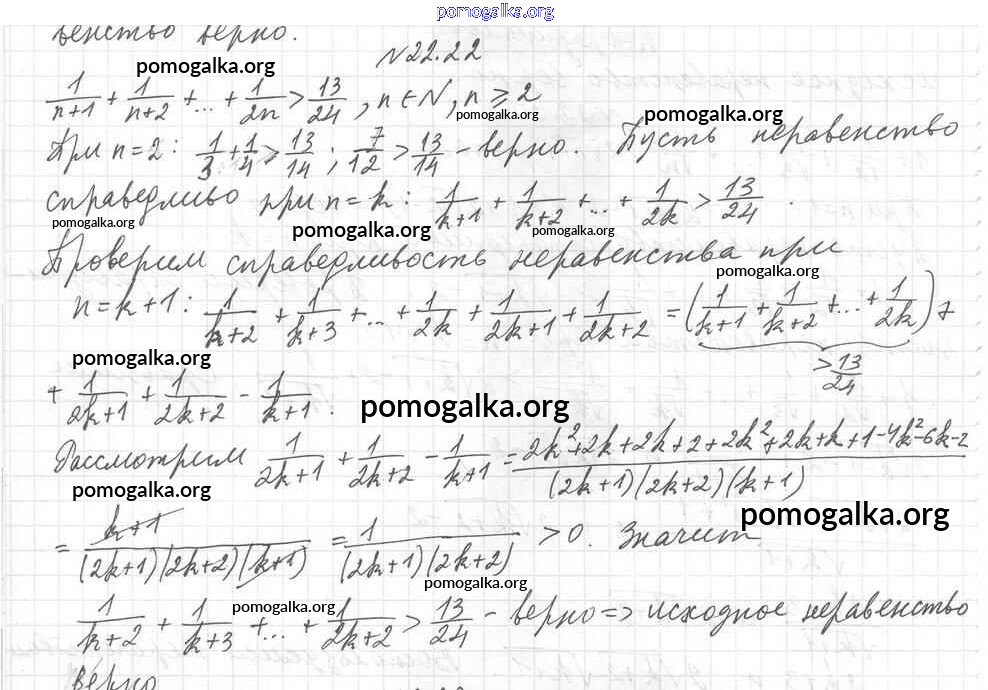 pomogalka.org
венство верно.
№22.22
pomogalka.org
1/(n+1) + 1/(n+2) + ... + 1/(2n) > 13/24, n ∈ N, n ≥ 2
pomogalka.org pomogalka.org
При n=2: 1/3 + 1/4 > 13/14; 7/12 > 13/14 - верно. Пусть неравенство
справедливо при n=k: 1/(k+1) + 1/(k+2) + ... + 1/(2k) > 13/24.
pomogalka.org pomogalka.org pomogalka.org
Проверим справедливость неравенства при
pomogalka.org
n=k+1: 1/(k+2) + 1/(k+3) + ... + 1/(2k) + 1/(2k+1) + 1/(2k+2) = (1/(k+1) + 1/(k+2) + ... + 1/(2k)) +
> 13/24
pomogalka.org
+ 1/(2k+1) + 1/(2k+2) - 1/(k+1).
pomogalka.org
Рассмотрим 1/(2k+1) + 1/(2k+2) - 1/(k+1) = (2k²+2k+2k+2+2k²+2k+k+1-4k²-6k-2)/((2k+1)(2k+2)(k+1))
pomogalka.org pomogalka.org
= (k+1)/((2k+1)(2k+2)(k+1)) = 1/((2k+1)(2k+2)) > 0. Значит
pomogalka.org
pomogalka.org
1/(k+2) + 1/(k+3) + ... + 1/(2k+2) > 13/24 - верно => исходное неравенство
верно